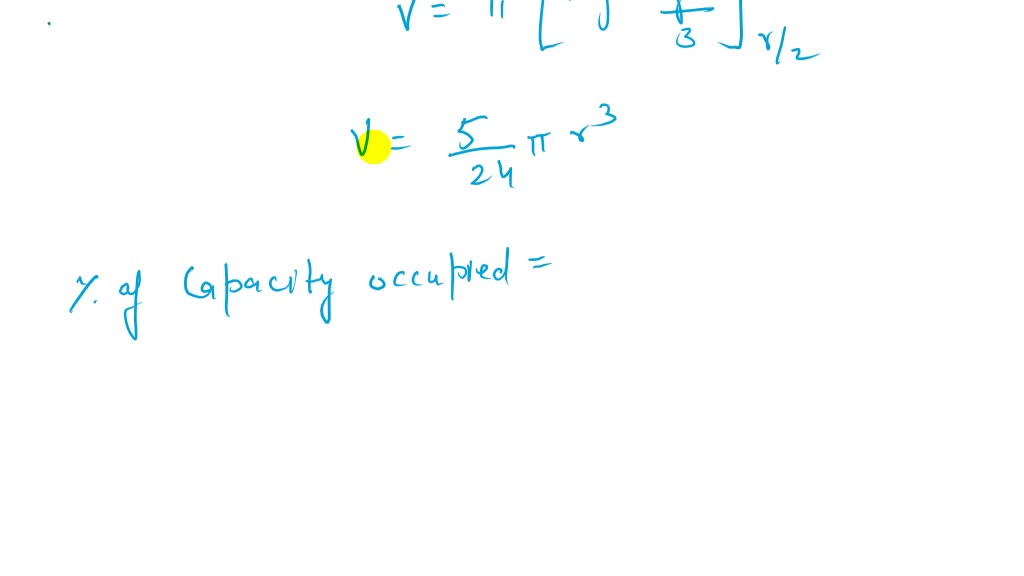 V = π [ y 3 ] r/2
V = 5/24 π r³
% of Capacity occupied =